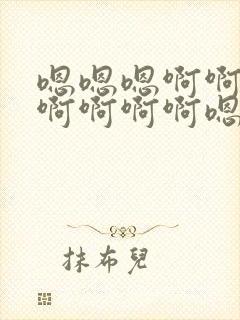 嗯嗯嗯啊啊
啊啊啊啊嗯
抹布兒